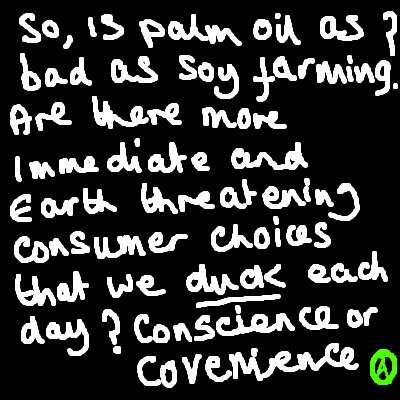 So, is palm oil as ?
bad as soy farming.
Are there more
immediate and
Earth threatening
consumer choices
that we duck each
day? Conscience or
covenience Ⓐ